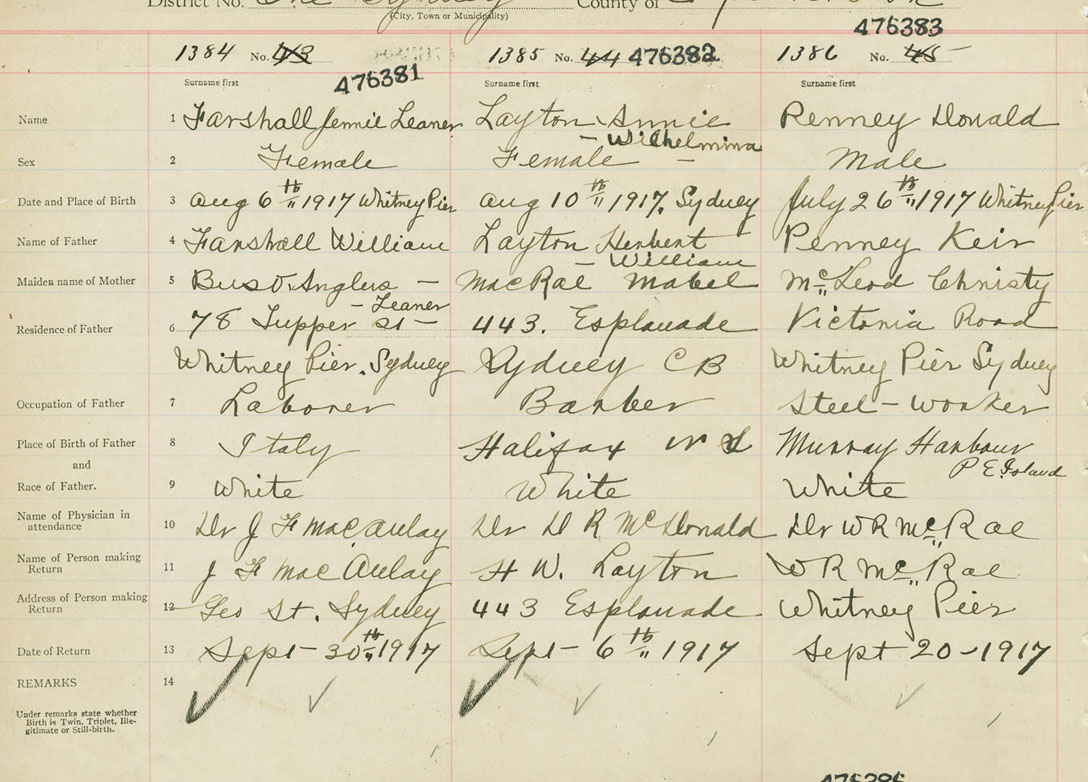 District No. One Sydney County of
(City, Town or Municipality)
476383
1384 No. 43 1385 No. 44 476382 1386 No. 45
476381
Surname first Surname first Surname first
Name 1 Farshall Jennie Leaner Layton Annie Penney Donald
- Wilhelmina
Sex 2 Female Female - Male
Date and Place of Birth 3 Aug 6th 1917 Whitney Pier Aug 10th 1917, Sydney July 26th 1917 Whitney Pier
Name of Father 4 Farshall William Layton Herbert Penney Keir
- William
Maiden name of Mother 5 Buso Anglus - MacRae Mabel McLeod Christy
- Leaner
Residence of Father 6 78 Tupper St - 443. Esplanade Victoria Road
Whitney Pier, Sydney Sydney C B Whitney Pier Sydney
Occupation of Father 7 Laborer Barber Steel - worker
Place of Birth of Father 8 Italy Halifax N S Murray Harbour
and P E Island
Race of Father. 9 White White White
Name of Physician in attendance 10 Dr J F MacAulay Dr D R McDonald Dr W R McRae
Name of Person making Return 11 J F MacAulay H W. Layton W R McRae
Address of Person making Return 12 Geo St. Sydney 443 Esplanade Whitney Pier
Date of Return 13 Sept - 30th 1917 Sept - 6th 1917 Sept 20 - 1917
REMARKS 14
Under remarks state whether
Birth is Twin, Triplet, Ille-
gitimate or Still-birth.